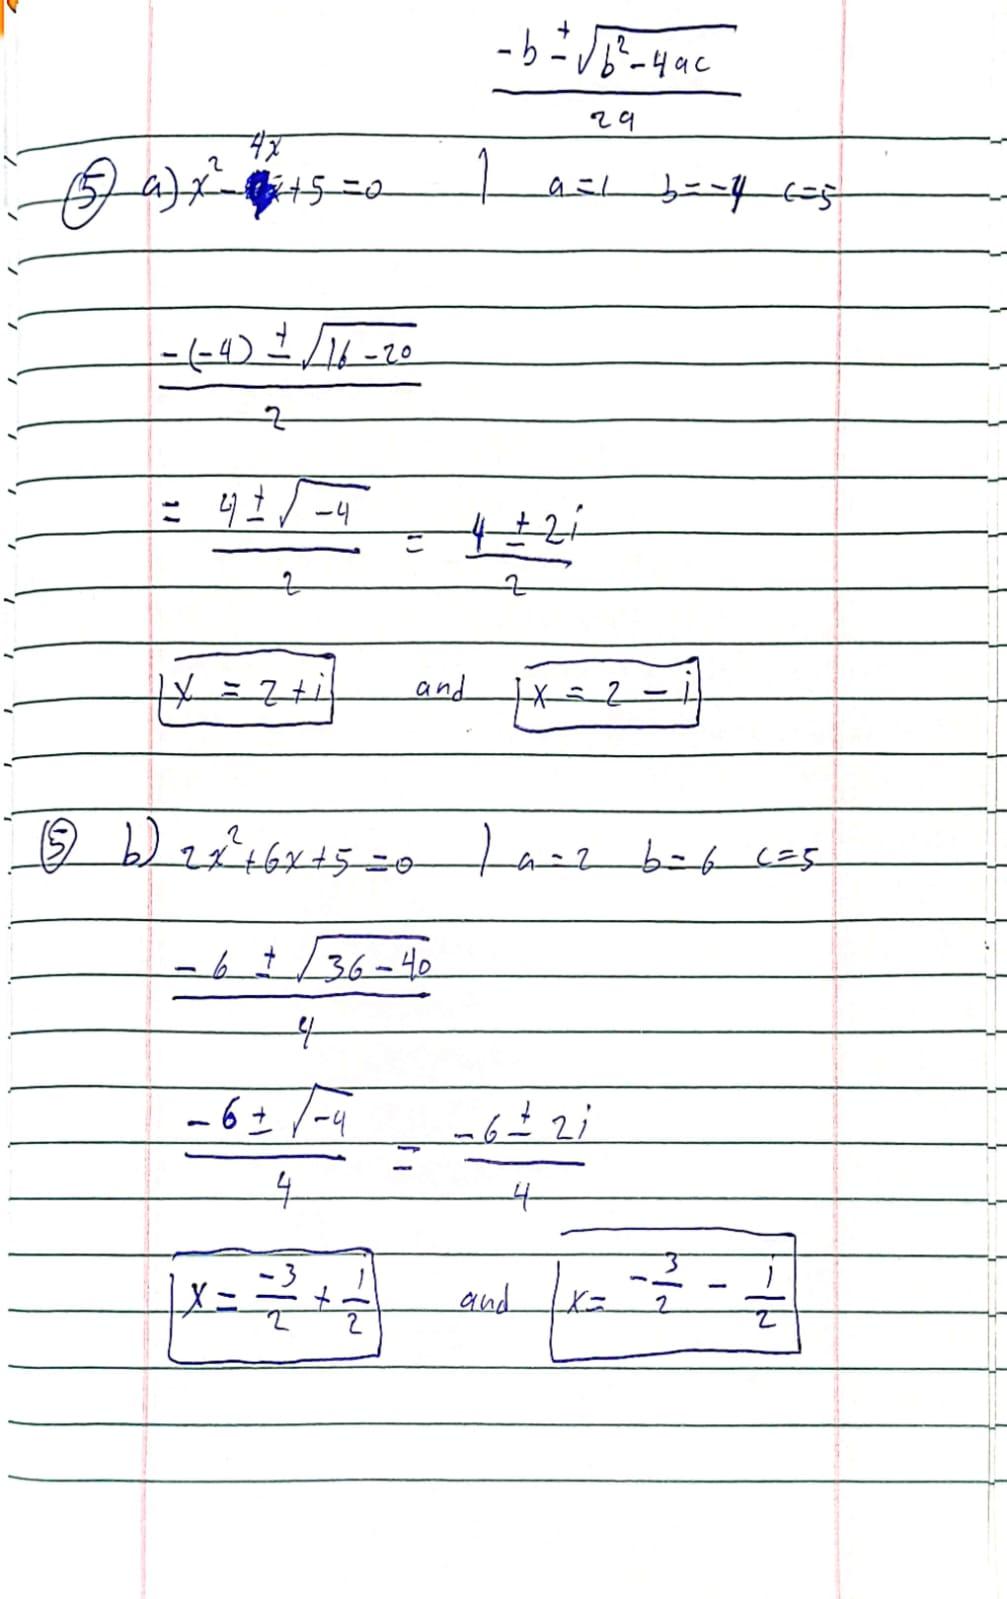 -b ± √(b² - 4ac)
2a
4x
⑤ a) x² - + 5 = 0 | a = 1 b = -4 c = 5
-(-4) ± √(16 - 20)
2
= 4 ± √-4 = 4 ± 2i
2 2
x = 2 + i and x = 2 - i
⑤ b) 2x² + 6x + 5 = 0 | a = 2 b = 6 c = 5
-6 ± √(36 - 40)
4
-6 ± √-4 = -6 ± 2i
4 4
x = -3/2 + i/2 and x = -3/2 - i/2